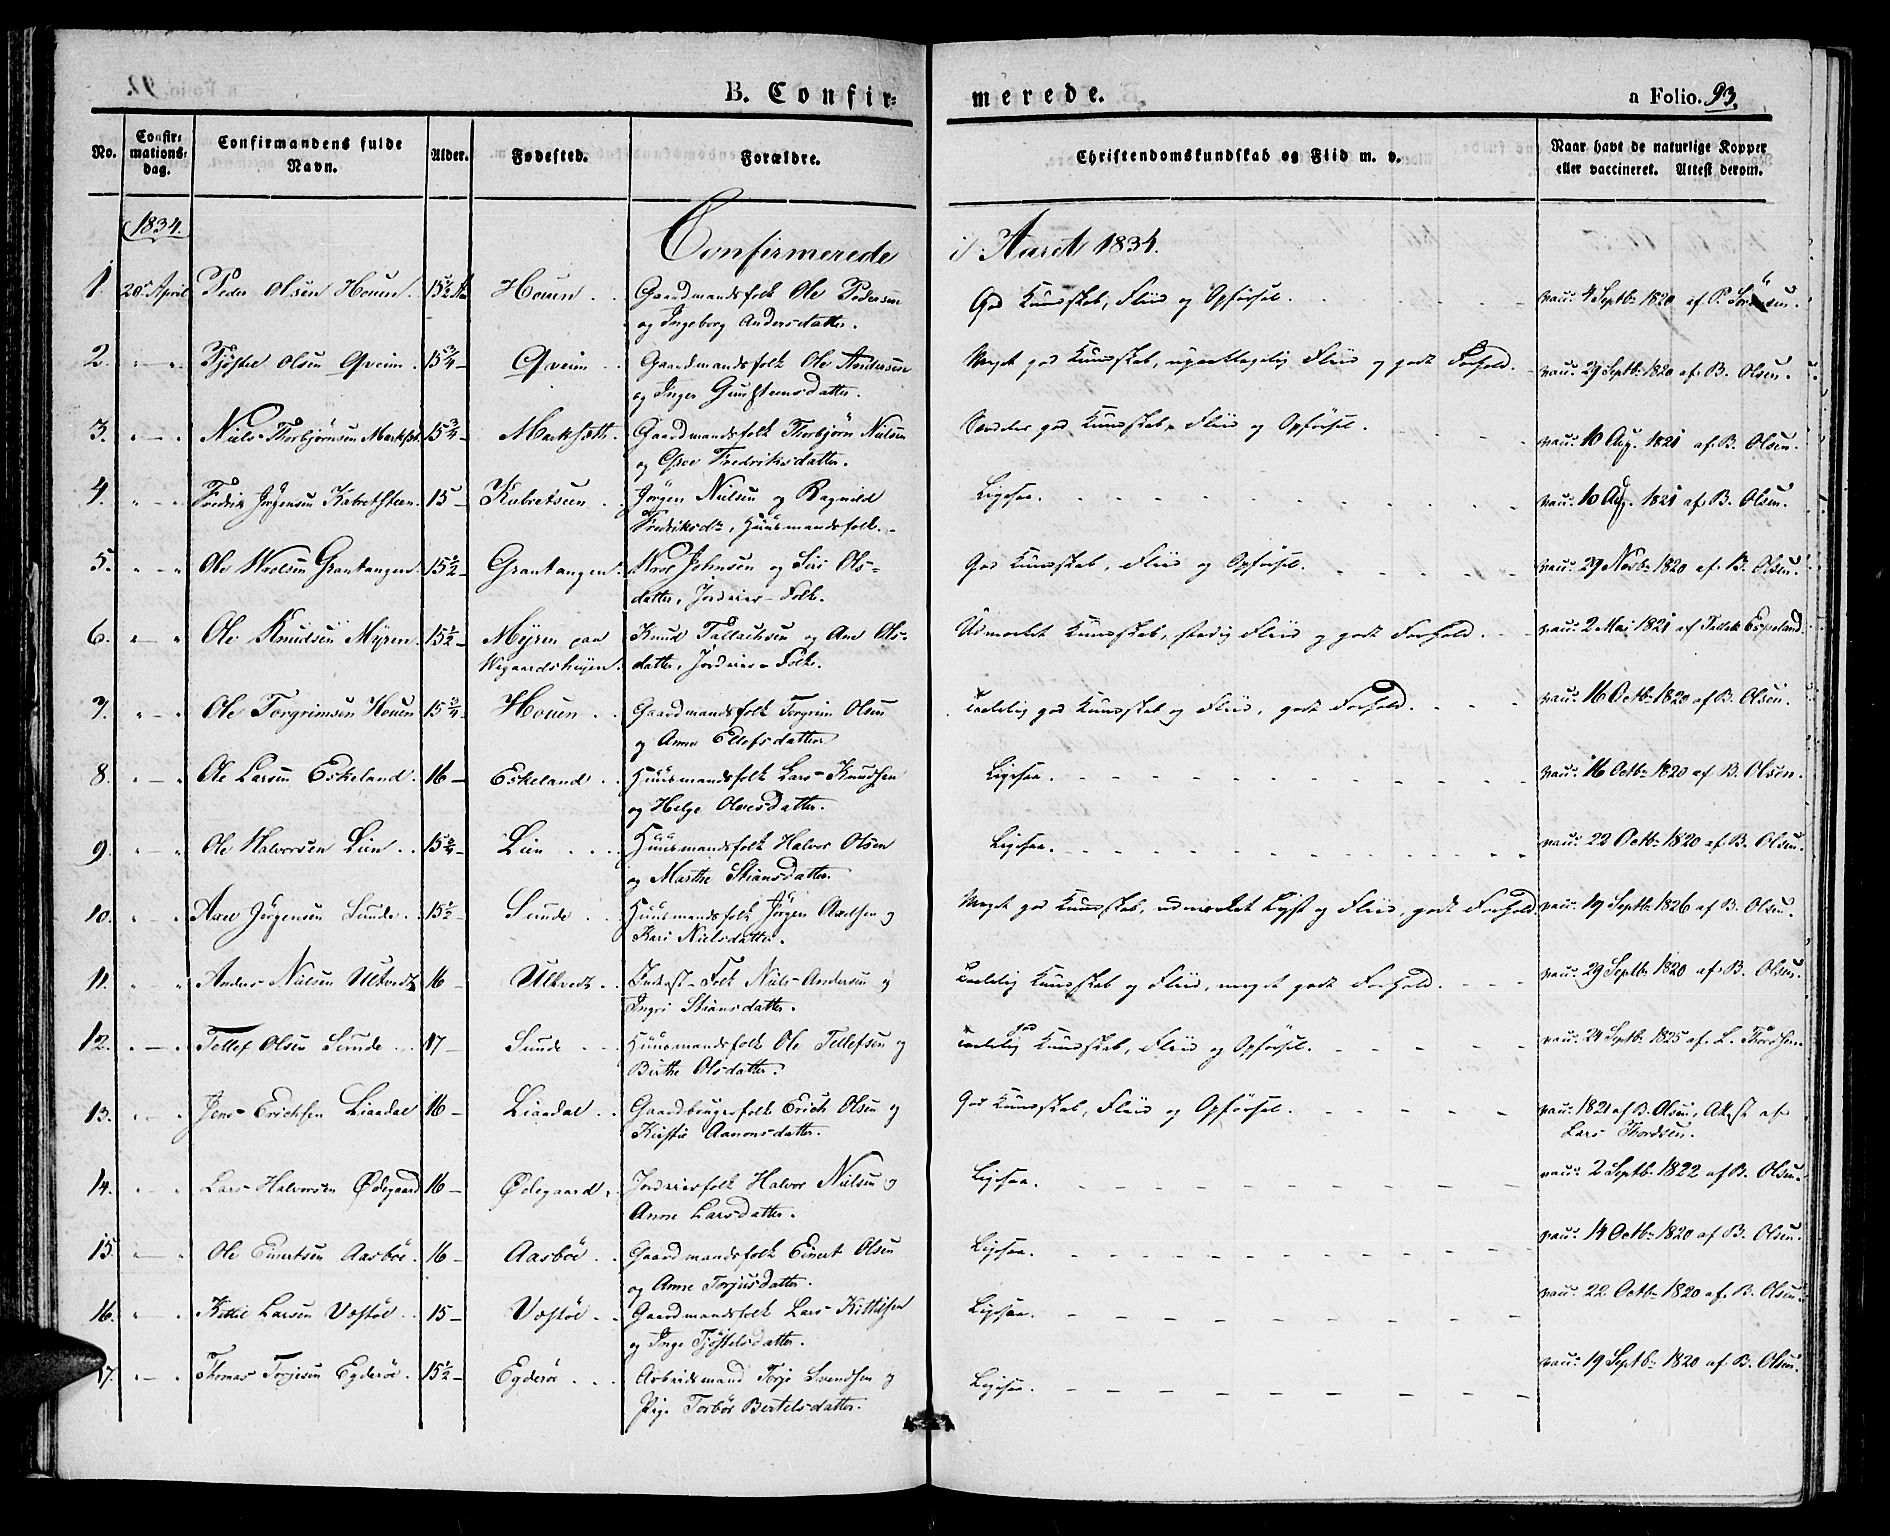 B. Confir=
merede.
a Folio. 93.
No.
Confir=
mations=
dag.
Confirmandens fulde
Navn.
Alder.
Fødested.
Forældre.
Christendomskundskab og Flid m. v.
Naar havt de naturlige Kopper
eller vaccineret. Attest derom.
1834.
Confirmerede
i Aaret 1834.
1. 20de April Peder Olsen Houen. 15 1/2 Houen Gaardmandsfolk Ole Pedersen
og Ingeborg Andersdatter.
God Kundskab, Fliid og Opførsel. vac: 4 Septbr 1820 af P.
2. Tjøstel Olsen Qveim. 15 3/4 Qveim Gaardmandsfolk Ole Andersen
og Inger Gunstensdatter.
Meget god Kundskab, Fliid og godt Forhold. vac: 29 Septbr 1820 af B. Olsen.
3. Niels Thorbjørnsen 15 3/4 Gaardmandsfolk Thorbjørn Nielsen
og Fredriksdatter.
god Kundskab, Fliid og Opførsel. vac: 10 Aug. 1821 af B. Olsen.
4. Fredrik Jørgensen 15 Jørgen Nielsen og Ragnild
Fredriksdr, Huusmandsfolk.
Ligesaa. vac: 10 Aug. 1821 af B. Olsen.
5. Ole Grantangen 15 1/2 Grantangen Johnsen og Siri Ols=
datter, Folk.
God Kundskab, Fliid og Opførsel. vac: 29 Novbr 1820 af B. Olsen.
6. Ole Knudsen Myren. 15 1/2 Myren paa
Wegaardsheyen.
Knud Tallachsen og Ane Ols=
datter, Folk.
Udmerket Kundskab, stadig Fliid og godt Forhold. vac: 2 Mai 1821 af Espeland.
7. Ole Torgrimsen Houen 15 3/4 Houen Gaardmandsfolk Torgrim Olsen
og Anne Ellefsdatter
god Kundskab og Fliid, godt Forhold. vac: 16 Octbr 1820 af B. Olsen.
8. Ole Larsen Eskeland. 16 Eskeland Huusmandsfolk Lars Knudsen
og Helge Olvesdatter.
Ligesaa. vac: 16 Octbr 1820 af B. Olsen.
9. Ole Halvorsen Lien 15 3/4 Lien Huusmandsfolk Halvor Olsen
og Marthe Stiansdatter.
Ligesaa. vac: 22 Octbr 1820 af B. Olsen.
10. Axel Jørgensen Sunde 15 1/2 Sunde Huusmandsfolk Jørgen Axelsen og
Kari Nielsdatter.
Meget god Kundskab, udmerket Lyst og Fliid, godt Forhold. vac: 19 Septbr 1826 af B. Olsen.
11. Anders Nielsen Ulltvedt 16 Ulltvedt Folk Niels Andersen og
Ingri Stiansdatter.
Kundskab og Fliid, meget godt Forhold. vac: 29 Septbr 1820 af B. Olsen.
12. Tellef Olsen Sunde 17 Sunde Huusmandsfolk Ole Tellefsen og
Birthe Olsdatter.
god Kundskab, Fliid og Opførsel. vac: 24 Septbr 1825 af L. Thordsen.
13. Jens Erichsen Liaadal 16 Liaadal Gaardbrugerfolk Erich Olsen og
Kirstie Aanonsdatter.
God Kundskab, Fliid og Opførsel. vac: 1821 af B. Olsen, Attest af
Lars Thordsen.
14. Lars Halvorsen Ødegaard 16 Ødegaard Halvor Nielsen og
Anne Larsdatter.
Ligesaa. vac: 2 Septbr 1822 af B. Olsen.
15. Ole Einertsen Aasbøe 16 Aasbøe Gaardmandsfolk Einert Olsen
og Anne Torjusdatter.
Ligesaa. vac: 14 Octbr 1820 af B. Olsen.
16. Kittel Larsen Vestøl 15 Vestøl Gaardmandsfolk Lars Kittilsen
og Inge Tjøstelsdatter.
Ligesaa. vac: 22 Octbr 1820 af B. Olsen.
17. Thomas Torjesen Egderøe 15 1/2 Egderøe Arbeidsmand Torje Svendsen og
Pige Torbør Bertelsdatter.
Ligesaa. vac: 19 Septbr 1820 af B. Olsen.